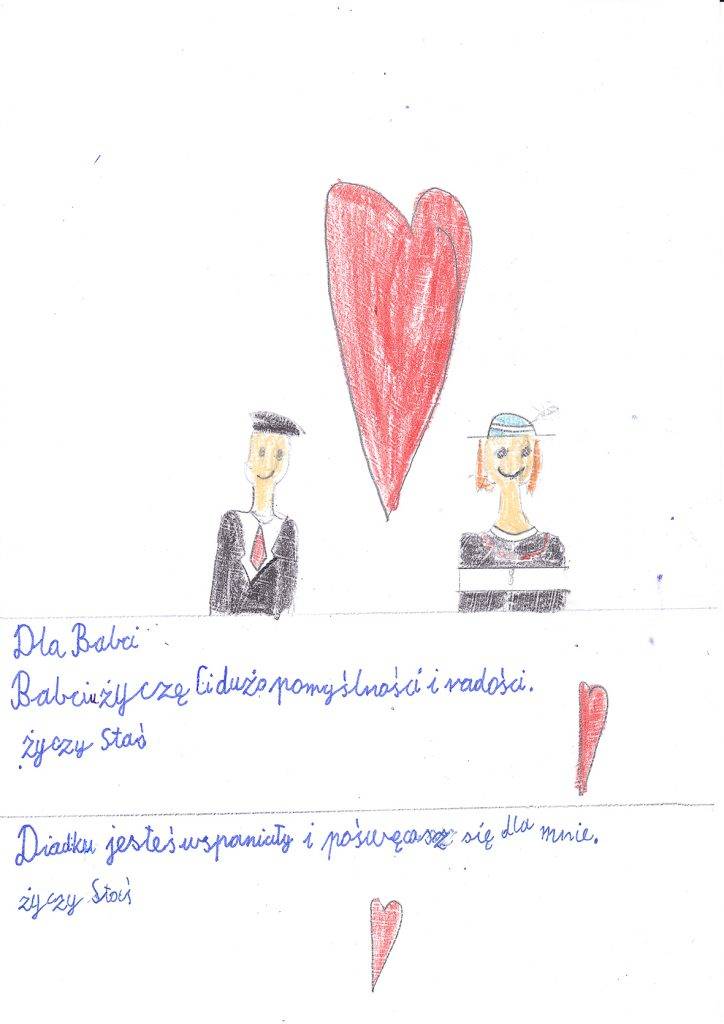 Dla Babci
Babciu życzę Ci dużo pomyślności i radości.
życzy Staś
Diadku jesteś wspaniały i poświęcasz się dla mnie.
życzy Staś